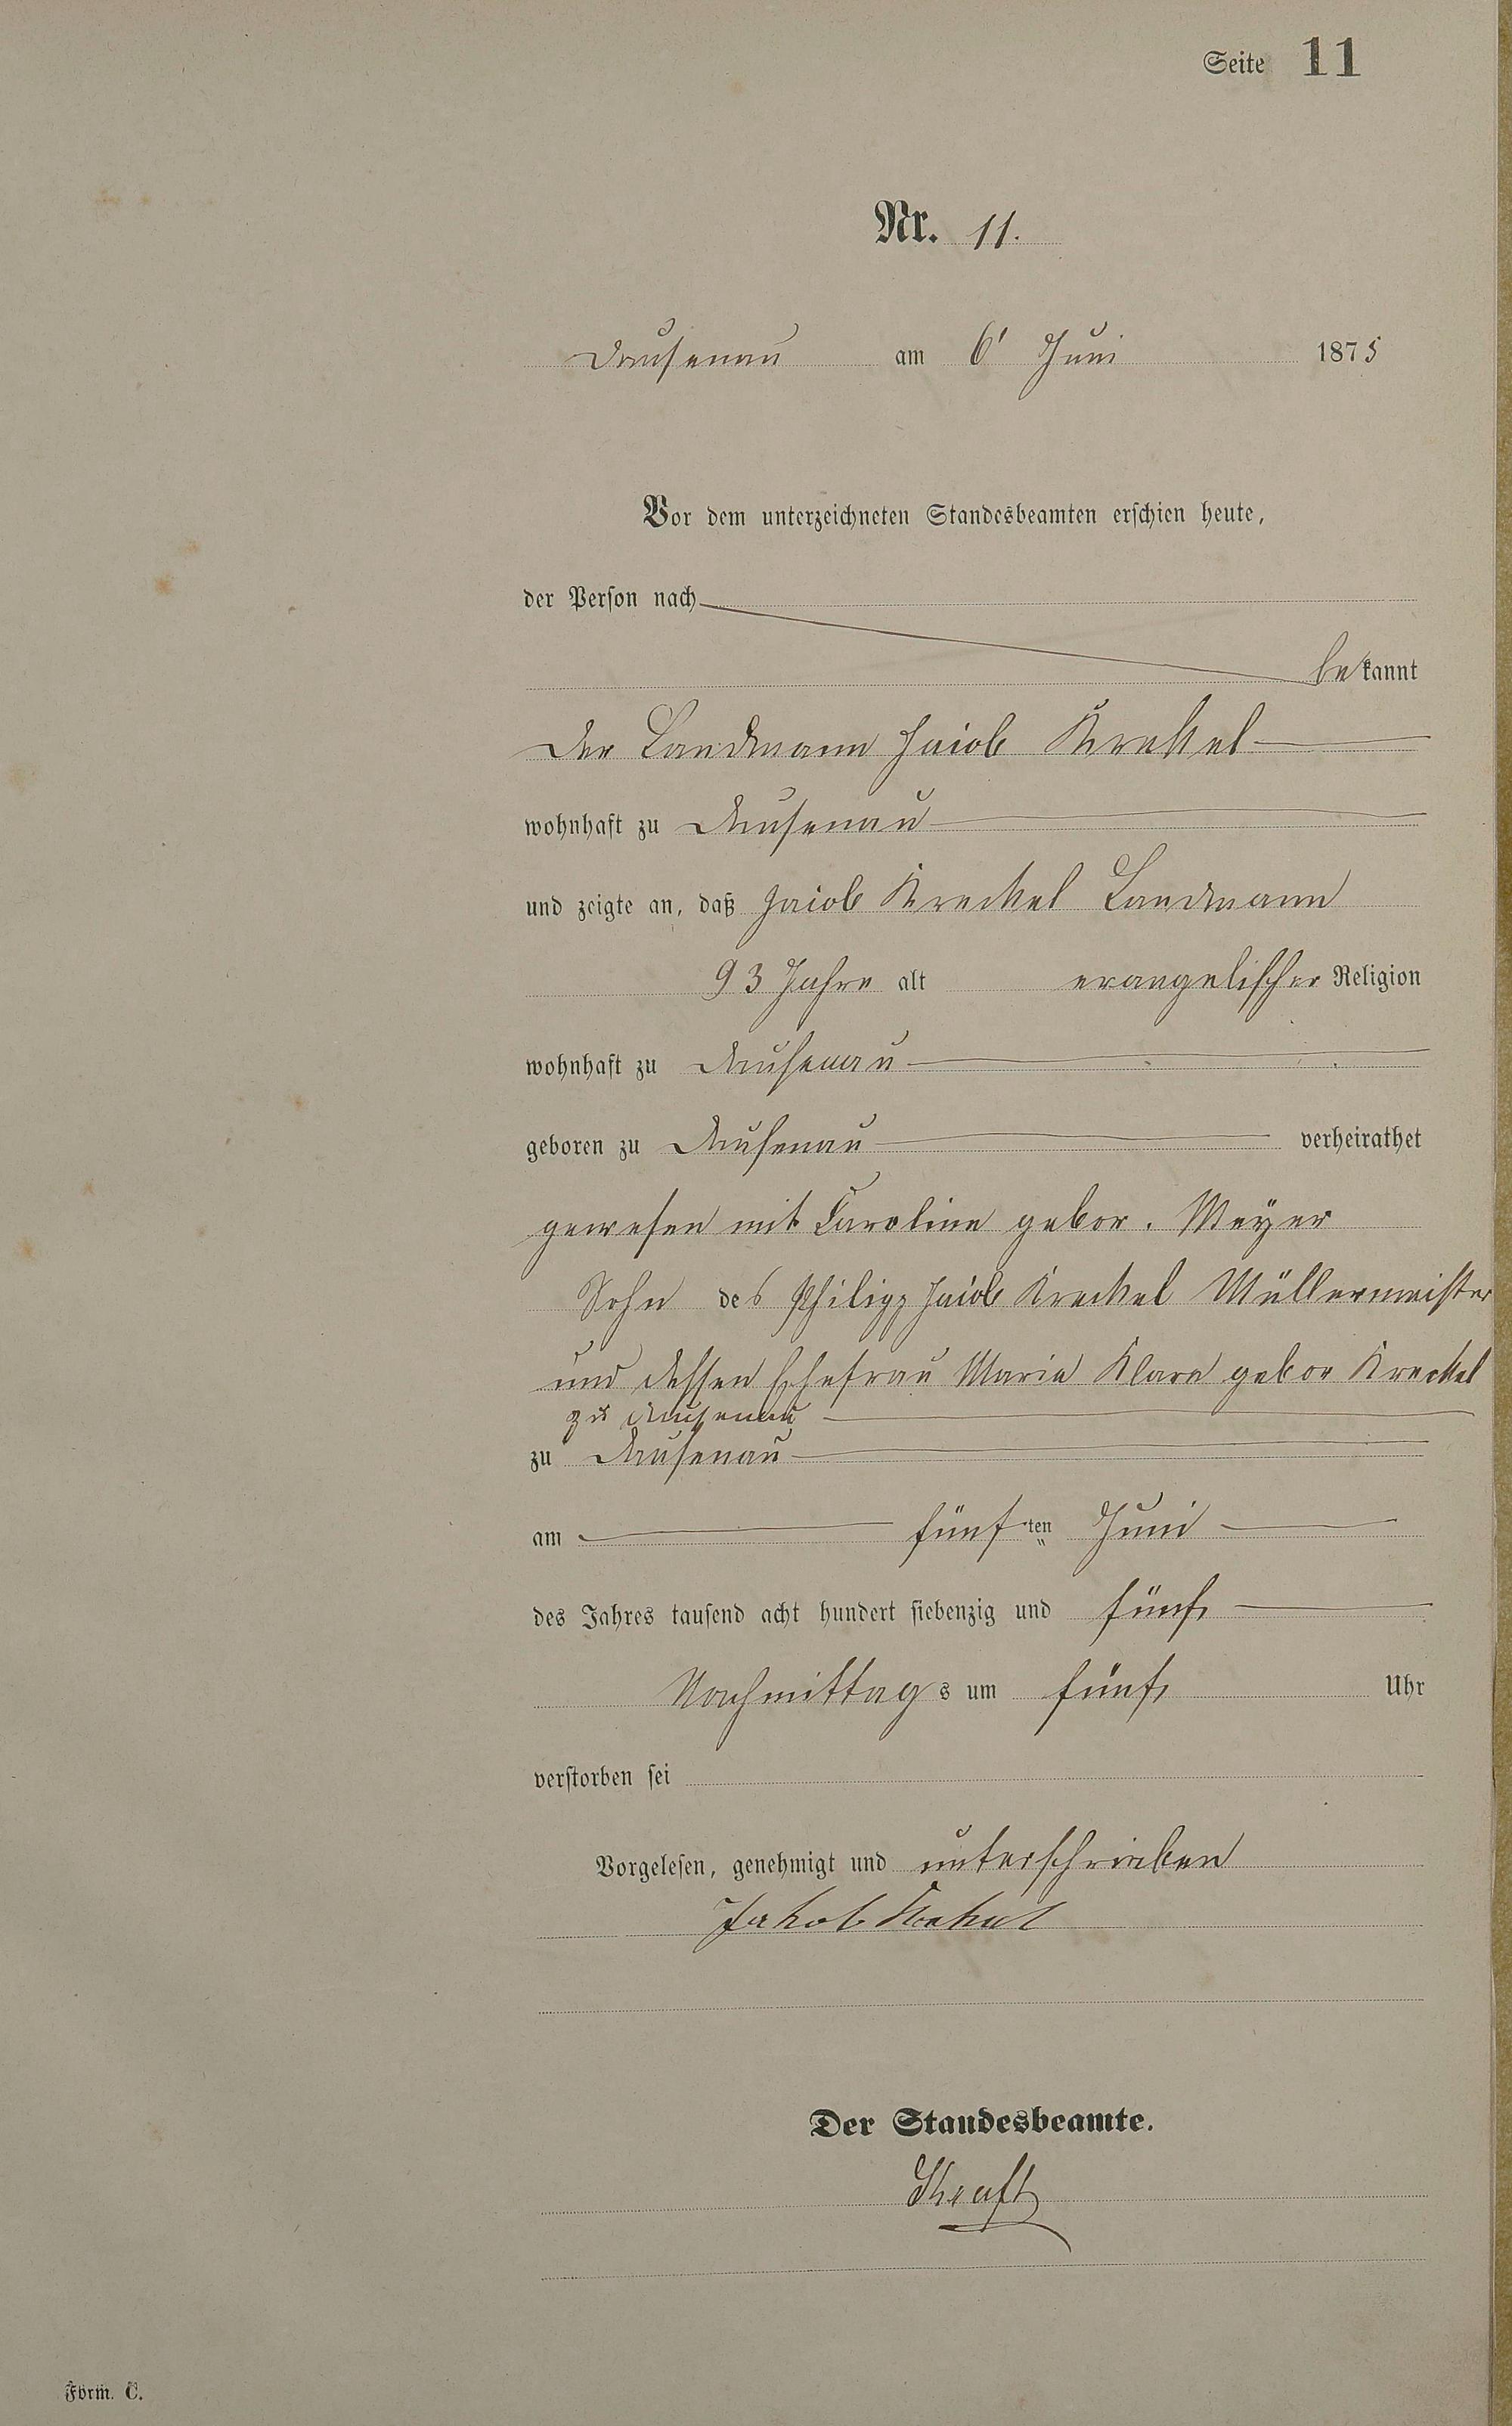 Seite 11
Nr. 11.
Dausenau am 6t Juni 1875
Vor dem unterzeichneten Standesbeamten erschien heute,
der Person nach
bekannt
der Landmann Jacob Kreckel
wohnhaft zu Dausenau
und zeigte an, daß Jacob Kreckel Landmann
93 Jahre alt evangelischer Religion
wohnhaft zu Dausenau
geboren zu Dausenau verheirathet
gewesen mit Caroline gebor. Meyer
Sohn des Philipp Jacob Kreckel Müllermeister
und dessen Ehefrau Maria Klara gebor Kreckel
zu Dausenau
zu Dausenau
am fünften Juni
des Jahres tausend acht hundert siebenzig und fünf
Nachmittags um fünf Uhr
verstorben sei
Vorgelesen, genehmigt und unterschrieben
Jakob Krekel
Der Standesbeamte.
Kraft
Form. C.